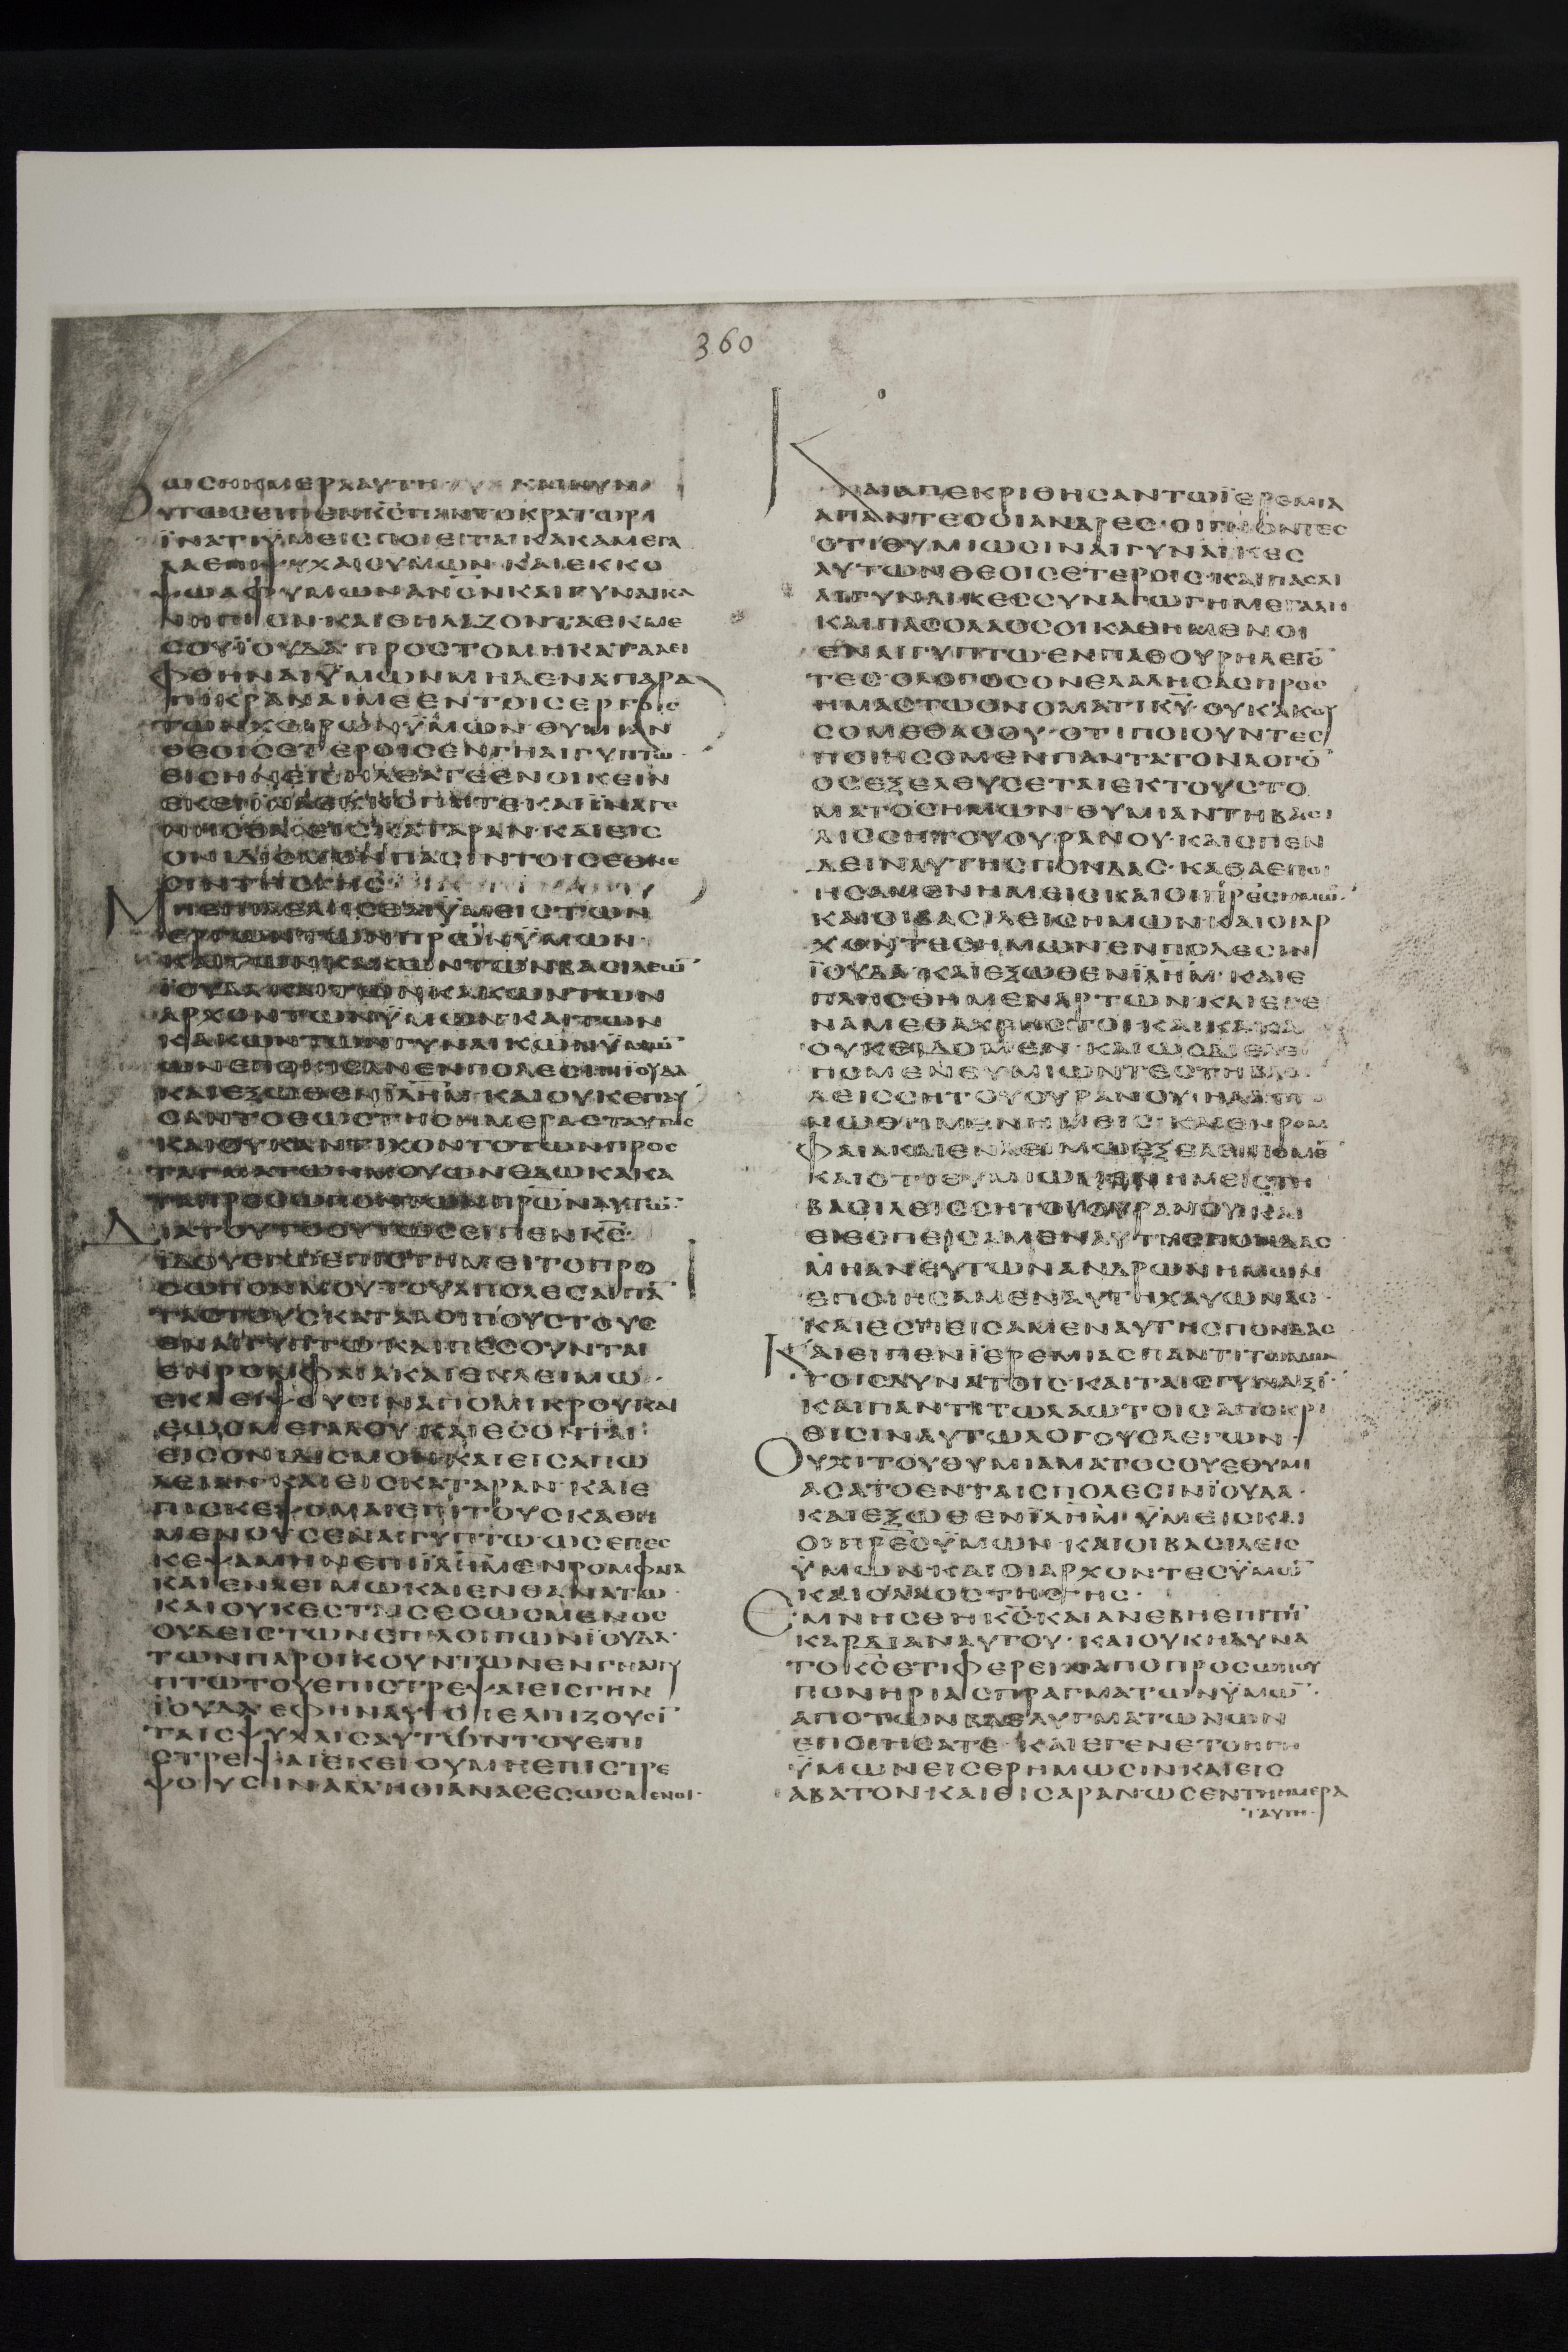 360
ΩϹΗΗΜΕΡΑΑΥΤΗ
ΟΥΤΩϹΕΙΠΕΝΚϹΠΑΝΤΟΚΡΑΤΩΡ
ΪΝΑΤΙΫΜΕΙϹΠΟΙΕΙΤΑΙΚΑΚΑΜΕΓΑ
ΛΑΕΠΙΨΥΧΑΙϹΥΜΩΝ·ΚΑΙΕΚΚΟ
ΨΩΑΦΥΜΩΝΑΝΟΝΚΑΙΓΥΝΑΙΚΑ
ΝΗΠΙΟΝ·ΚΑΙΘΗΛΑΖΟΝΤΑΕΚΜΕ
ϹΟΥΪΟΥΔΑ·ΠΡΟϹΤΟΜΗΚΑΤΑΛΕΙ
ΦΘΗΝΑΙΫΜΩΝΜΗΔΕΝΑΠΑΡΑ
ΠΙΚΡΑΝΑΙΜΕΕΝΤΟΙϹΕΡΓΟΙϹ
ΤΩΝΧΕΙΡΩΝΫΜΩΝ·ΘΥΜΙΑΝ
ΘΕΟΙϹΕΤΕΡΟΙϹΕΝΓΗΑΙΓΥΠΤΩ
ΕΙϹΗΝΕΙϹΗΛΘΑΤΕΕΝΟΙΚΕΙΝ
ΕΚΕΙΪΝΑΕΚΚΟΠΗΤΕ·ΚΑΙΪΝΑΓΕ
ΝΗϹΘΑΙΕΙϹΚΑΤΑΡΑΝ·ΚΑΙΕΙϹ
ΟΝΙΔΙϹΜΟΝΠΑϹΙΝΤΟΙϹΕΘΝΕ
ϹΙΝΤΗϹΓΗϹ·
ΜΗΕΠΙΛΕΛΗϹΘΑΙΫΜΕΙϹΤΩΝ
ΕΡΓΩΝΤΩΝΠΡΩΝΫΜΩΝ·
ΚΑΙΤΩΝΚΑΚΩΝΤΩΝΒΑϹΙΛΕΩ
ΪΟΥΔΑΚΑΙΤΩΝΚΑΚΩΝΤΩΝ
ΑΡΧΟΝΤΩΝΫΜΩΝ·ΚΑΙΤΩΝ
ΚΑΚΩΝΤΩΝΓΥΝΑΙΚΩΝΫΜΩ
ΩΝΕΠΟΙΗϹΑΝΕΝΠΟΛΕϹΙΝΪΟΥΔΑ
ΚΑΙΕΞΩΘΕΝΪΛΗΜ·ΚΑΙΟΥΚΕΠΑΥ
ϹΑΝΤΟΕΩϹΤΗϹΗΜΕΡΑϹΤΑΥΤΗϹ
ΚΑΙΟΥΚΑΝΤΙΧΟΝΤΟΤΩΝΠΡΟϹ
ΤΑΓΜΑΤΩΝΜΟΥΩΝΕΔΩΚΑΚΑ
ΤΑΠΡΟϹΩΠΟΝΤΩΝΠΡΩΝΑΥΤΩ·
ΔΙΑΤΟΥΤΟΟΥΤΩϹΕΙΠΕΝΚϹ·
ΪΔΟΥΕΓΩΕΦΙϹΤΗΜΕΙΤΟΠΡΟ
ϹΩΠΟΝΜΟΥ·ΤΟΥΑΠΟΛΕϹΑΙΠΑ
ΤΑϹΤΟΥϹΚΑΤΑΛΟΙΠΟΥϹΤΟΥϹ
ΕΝΑΙΓΥΠΤΩ·ΚΑΙΠΕϹΟΥΝΤΑΙ
ΕΝΡΟΜΦΑΙΑΚΑΙΕΝΛΕΙΜΩ·
ΕΚΛΕΙΨΟΥϹΙΝΑΠΟΜΙΚΡΟΥΚΑΙ
ΕΩϹΜΕΓΑΛΟΥ·ΚΑΙΕϹΟΝΤΑΙ
ΕΙϹΟΝΙΔΙϹΜΟΝ·ΚΑΙΕΙϹΑΠΩ
ΛΕΙΑΝ·ΚΑΙΕΙϹΚΑΤΑΡΑΝ·ΚΑΙΕ
ΠΙϹΚΕΨΟΜΑΙΕΠΙΤΟΥϹΚΑΘΗ
ΜΕΝΟΥϹΕΝΑΙΓΥΠΤΩ·ΩϹΕΠΕϹ
ΚΕΨΑΜΗΝΕΠΙΪΛΗΜΕΝΡΟΜΦΑΙΑ
ΚΑΙΕΝΛΕΙΜΩΚΑΙΕΝΘΑΝΑΤΩ·
ΚΑΙΟΥΚΕϹΤΑΙϹΕϹΩϹΜΕΝΟϹ
ΟΥΔΕΙϹΤΩΝΕΠΙΛΟΙΠΩΝΪΟΥΔΑ·
ΤΩΝΠΑΡΟΙΚΟΥΝΤΩΝΕΝΓΗΑΙΓΥ
ΠΤΩΤΟΥΕΠΙϹΤΡΕΨΑΙΕΙϹΓΗΝ
ΪΟΥΔΑΕΦΗΝΑΥΤΟΙΕΛΠΙΖΟΥϹΙ
ΤΑΙϹΨΥΧΑΙϹΑΥΤΩΝΤΟΥΕΠΙ
ϹΤΡΕΨΑΙΕΚΕΙΟΥΜΗΕΠΙϹΤΡΕ
ΨΟΥϹΙΝΑΛΛΗΟΙΑΝΑϹΕϹΩϹΜΕΝΟΙ·
ΚΑΙΑΠΕΚΡΙΘΗϹΑΝΤΩΪΕΡΕΜΙΑ
ΑΠΑΝΤΕϹΟΙΑΝΔΡΕϹ·ΟΙΓΝΟΝΤΕϹ
ΟΤΙΘΥΜΙΩϹΙΝΑΙΓΥΝΑΙΚΕϹ
ΑΥΤΩΝΘΕΟΙϹΕΤΕΡΟΙϹ·ΚΑΙΠΑϹΑΙ
ΑΙΓΥΝΑΙΚΕϹϹΥΝΑΓΩΓΗΜΕΓΑΛΗ
ΚΑΙΠΑϹΟΛΑΟϹΟΙΚΑΘΗΜΕΝΟΙ
ΕΝΑΙΓΥΠΤΩ·ΕΝΠΑΘΟΥΡΗΛΕΓΟ
ΤΕϹΟΛΟΓΟϹΟΝΕΛΑΛΗϹΑϹΠΡΟϹ
ΗΜΑϹΤΩΟΝΟΜΑΤΙΚΥ·ΟΥΚΑΚΟΥ
ϹΟΜΕΘΑϹΟΥ·ΟΤΙΠΟΙΟΥΝΤΕϹ
ΠΟΙΗϹΟΜΕΝΠΑΝΤΑΤΟΝΛΟΓΟ
ΟϹΕΞΕΛΕΥϹΕΤΑΙΕΚΤΟΥϹΤΟ
ΜΑΤΟϹΗΜΩΝ·ΘΥΜΙΑΝΤΗΒΑϹΙ
ΛΙϹϹΗΤΟΥΟΥΡΑΝΟΥ·ΚΑΙϹΠΕΝ
ΔΕΙΝΑΥΤΗϹΠΟΝΔΑϹ·ΚΑΘΑΕΠΟΙ
ΗϹΑΜΕΝΗΜΕΙϹΚΑΙΟΙΠΡΕϹΗΜΩ·
ΚΑΙΟΙΒΑϹΙΛΕΙϹΗΜΩΝ·ΚΑΙΟΙΑΡ
ΧΟΝΤΕϹΗΜΩΝΕΝΠΟΛΕϹΙΝ
ΪΟΥΔΑ·ΚΑΙΕΞΩΘΕΝΪΛΗΜ·ΚΑΙΕ
ΠΛΗϹΘΗΜΕΝΑΡΤΩΝ·ΚΑΙΕΓΕ
ΝΑΜΕΘΑΧΡΗϹΤΟΙ·ΚΑΙΚΑΚΑ
ΟΥΚΕΙΔΟΜΕΝ·ΚΑΙΩϹΔΙΕΛΕΙ
ΠΟΜΕΝΘΥΜΙΩΝΤΕϹΤΗΒΑϹΙ
ΛΕΙϹϹΗΤΟΥΟΥΡΑΝΟΥ·ΗΛΑΤΤΟ
ΝΩΘΗΜΕΝΗΜΕΙϹ·ΚΑΙΕΝΡΟΜ
ΦΑΙΑΚΑΙΕΝΛΕΙΜΩΕΞΕΛΕΙΠΟΜΕ
ΚΑΙΟΤΙΕΘΥΜΙΩΜΕΝΗΜΕΙϹΤΗ
ΒΑϹΙΛΕΙϹϹΗΤΟΥΟΥΡΑΝΟΥ·ΚΑΙ
ΕϹΠΕΙϹΑΜΕΝΑΥΤΗϹΠΟΝΔΑϹ
ΜΗΑΝΕΥΤΩΝΑΝΔΡΩΝΗΜΩΝ
ΕΠΟΙΗϹΑΜΕΝΑΥΤΗΧΑΥΩΝΑϹ·
ΚΑΙΕϹΠΕΙϹΑΜΕΝΑΥΤΗϹΠΟΝΔΑϹ
ΚΑΙΕΙΠΕΝΪΕΡΕΜΙΑϹΠΑΝΤΙΤΩΛΑΩ
ΤΟΙϹΔΥΝΑΤΟΙϹ·ΚΑΙΤΑΙϹΓΥΝΑΞΙ·
ΚΑΙΠΑΝΤΙΤΩΛΑΩΤΟΙϹΑΠΟΚΡΙ
ΘΙϹΙΝΑΥΤΩΛΟΓΟΥϹΛΕΓΩΝ·
ΟΥΧΙΤΟΥΘΥΜΙΑΜΑΤΟϹΟΥΕΘΥΜΙ
ΑϹΑΤΟΕΝΤΑΙϹΠΟΛΕϹΙΝΪΟΥΔΑ·
ΚΑΙΕΞΩΘΕΝΪΛΗΜ·ΫΜΕΙϹΚΑΙ
ΟΙΠΡΕϹΫΜΩΝ·ΚΑΙΟΙΒΑϹΙΛΕΙϹ
ΫΜΩΝ·ΚΑΙΟΙΑΡΧΟΝΤΕϹΫΜΩ
ΚΑΙΟΛΑΟϹΤΗϹΓΗϹ·
ΕΜΝΗϹΘΗΚϹ·ΚΑΙΑΝΕΒΗΕΠΙΤΗ
ΚΑΡΔΙΑΝΑΥΤΟΥ·ΚΑΙΟΥΚΗΔΥΝΑ
ΤΟΚϹΕΤΙΦΕΡΕΙΝΑΠΟΠΡΟϹΩΠΟΥ
ΠΟΝΗΡΙΑϹΠΡΑΓΜΑΤΩΝΫΜΩ·
ΑΠΟΤΩΝΒΔΕΛΥΓΜΑΤΩΝΩΝ
ΕΠΟΙΗϹΑΤΕ·ΚΑΙΕΓΕΝΕΤΟΗΓΗ
ΫΜΩΝΕΙϹΕΡΗΜΩϹΙΝΚΑΙΕΙϹ
ΑΒΑΤΟΝ·ΚΑΙΕΙϹΑΡΑΝΩϹΕΝΤΗΗΜΕΡΑ
ΤΑΥΤΗ·